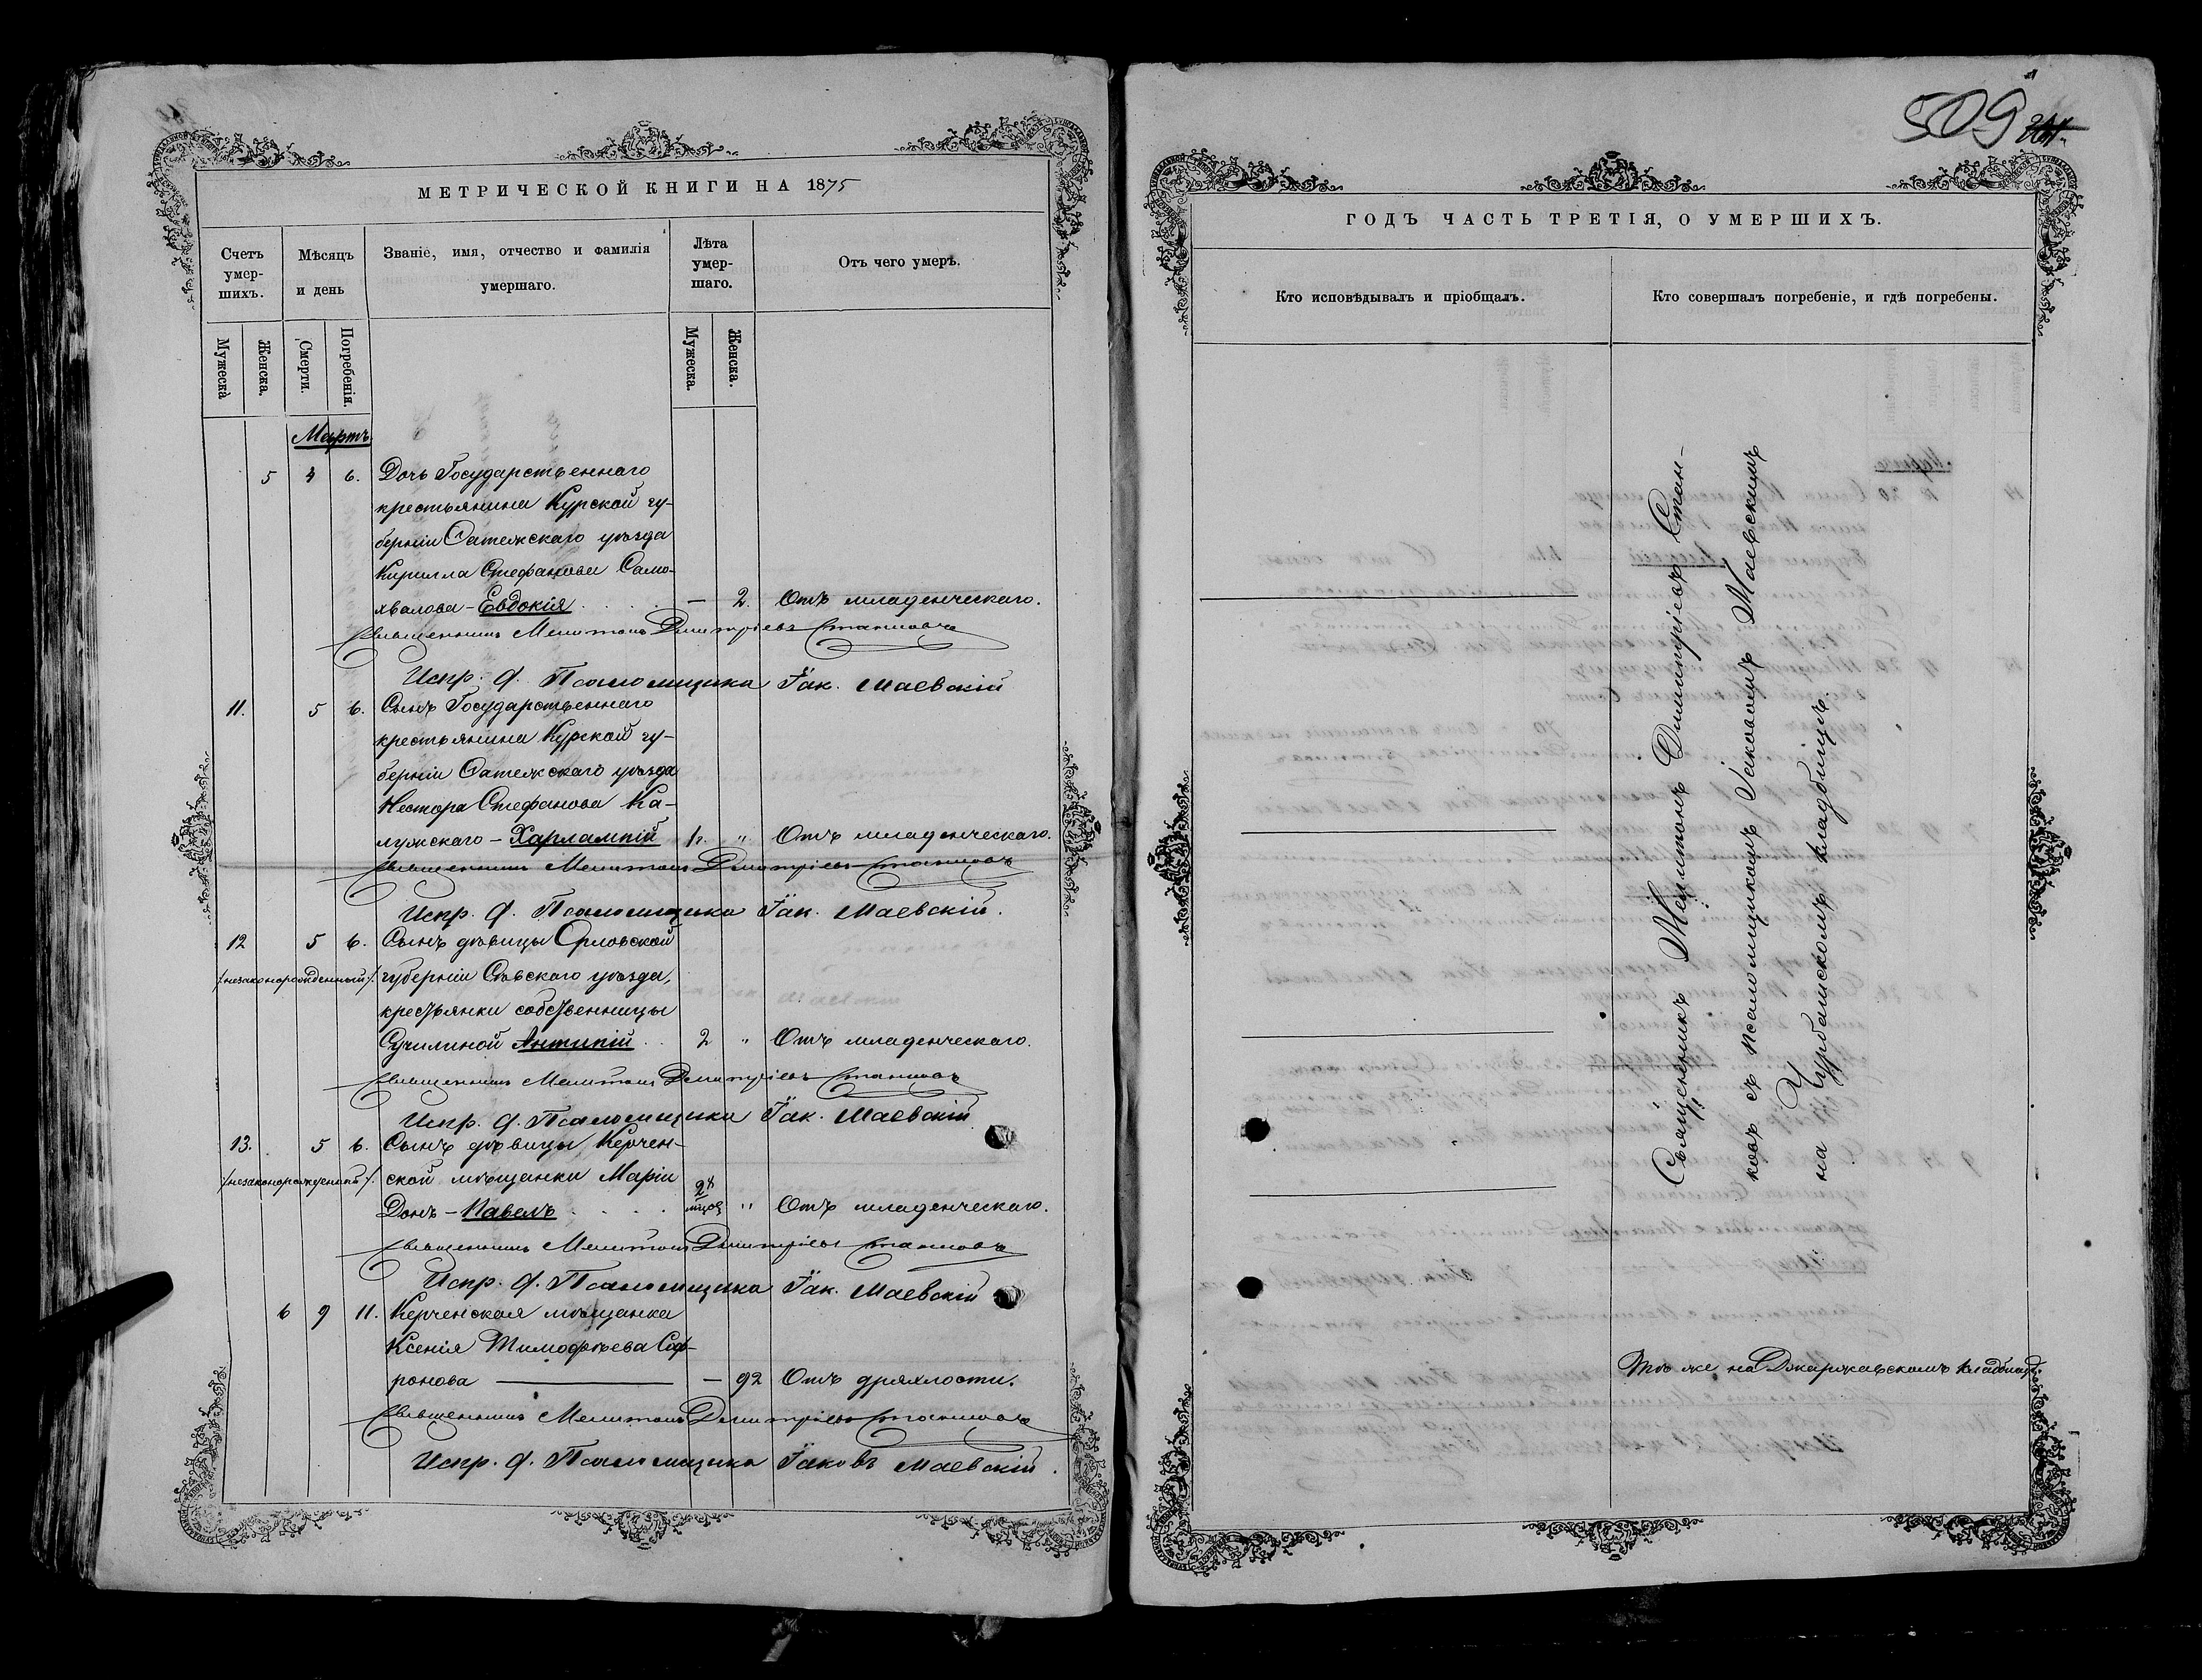 МЕТРИЧЕСКОЙ КНИГИ НА 1875
Счетъ умер-шихъ.
Мѣсяцъ и день
Званіе, имя, отчество и фамилія умершаго.
Лѣта умер-шаго.
Отъ чего умеръ.
Мужеска
Женска.
Смерти.
Погребенія.
Мужеска.
Женска.
Мартъ
5 4 6. Дочь Государственнаго
крестьянина Курской гу-
берніи Фатежскаго уѣзда
Кирилла Стефанова Само-
хвалова - Евдокія . . . . — 2. Отъ младенческаго.
Священникъ Мелитонъ Димитріевъ Станковъ
Испр. д. Псаломщика Іак. Маевскій
11. 5 6. Сынъ Государственнаго
крестьянина Курской гу-
берніи Фатежскаго уѣзда
Нестора Стефанова Ка-
лужскаго - Харлампій 1г. " Отъ младенческаго.
Священникъ Мелитонъ Димитріевъ Станковъ
Испр. д. Псаломщика Іак. Маевскій.
12 5 6. Сынъ дѣвицы Орловской
/незаконорожденный/. губерніи Сѣвскаго уѣзда,
крестьянки собственницы
Сучилиной Антипій . . 2 " Отъ младенческаго.
Священникъ Мелитонъ Димитріевъ Станковъ
Испр. д. Псаломщика Іак. Маевскій
13. 5 6. Сынъ дѣвицы Керчен-
/незаконорожденный/. ской мѣщанки Маріи
Донъ - Павелъ . . . . 2х мцов " Отъ младенческаго.
Священникъ Мелитонъ Димитріевъ Станковъ
Испр. д. Псаломщика Іак. Маевскій
6 9 11. Керченская мѣщанка
Ксенія Тимофѣева Соф-
ронова — — 92 Отъ дряхлости.
Священникъ Мелитонъ Димитріевъ Станковъ
Испр. д. Псаломщика Іаковъ Маевскій.
509
ГОДЪ ЧАСТЬ ТРЕТІЯ, О УМЕРШИХЪ.
Кто исповѣдывалъ и пріобщалъ.
Кто совершалъ погребеніе, и гдѣ погребены.
Священникъ Мелитонъ Димитріевъ Стан-
ковъ съ псаломщикомъ Іаковомъ Маевскимъ
на Чурбашскомъ кладбищѣ.
Тѣ же на Джаржавскомъ кладбищѣ.